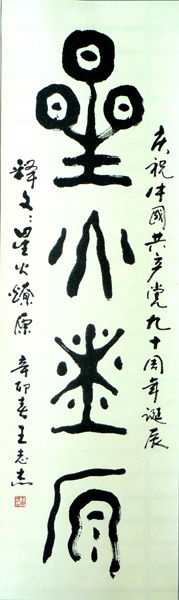 星火燎原
庆祝中國共产党九十周年诞辰
释文:星火燎原 辛卯春 王志杰